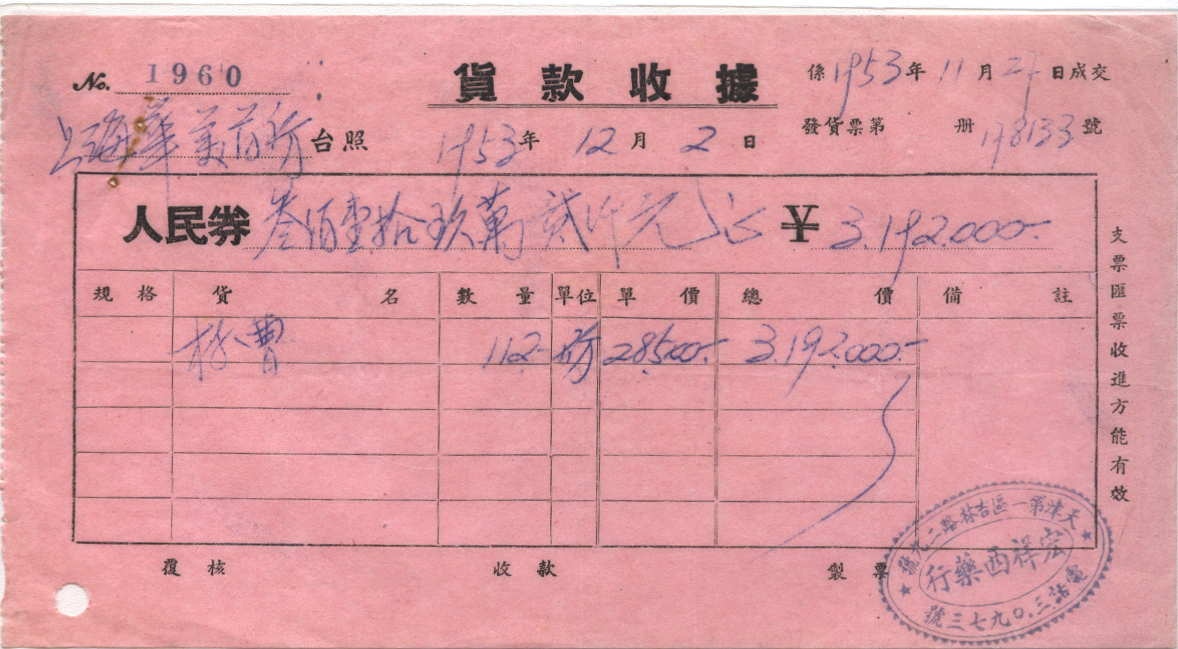 No. 1960
貨款收據
係1953年11月27日成交
發貨票第 册178133號
上海華美首行台照
1953年12月2日
人民券叁佰壹拾玖萬貳仟元正 ¥3,192,000-
規格 貨名 數量 單位 單價 總價 備註
112- 28500- 3,192,000-
支票匯票收進方能有效
覆核 收款 製票
天津第一區吉林路二九號
宏祥西藥行
電話三.〇九七三號